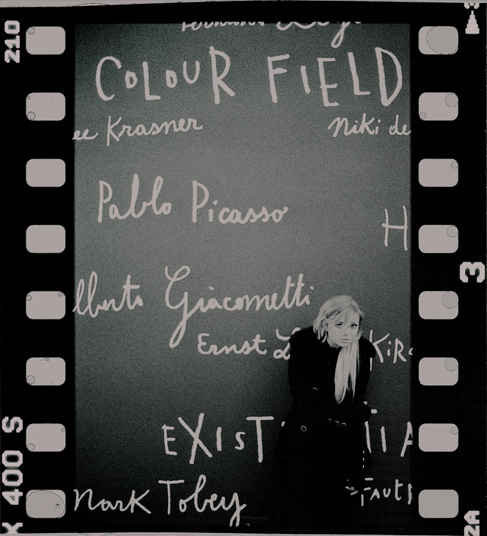 210
3
COLOUR FIELD
ee Krasner
Niki de
Pablo Picasso
H
3
lberto Giacometti
Ernst L
KiR
EXIST
IA
Mark Tobey
FAUt
X 400 S
2A